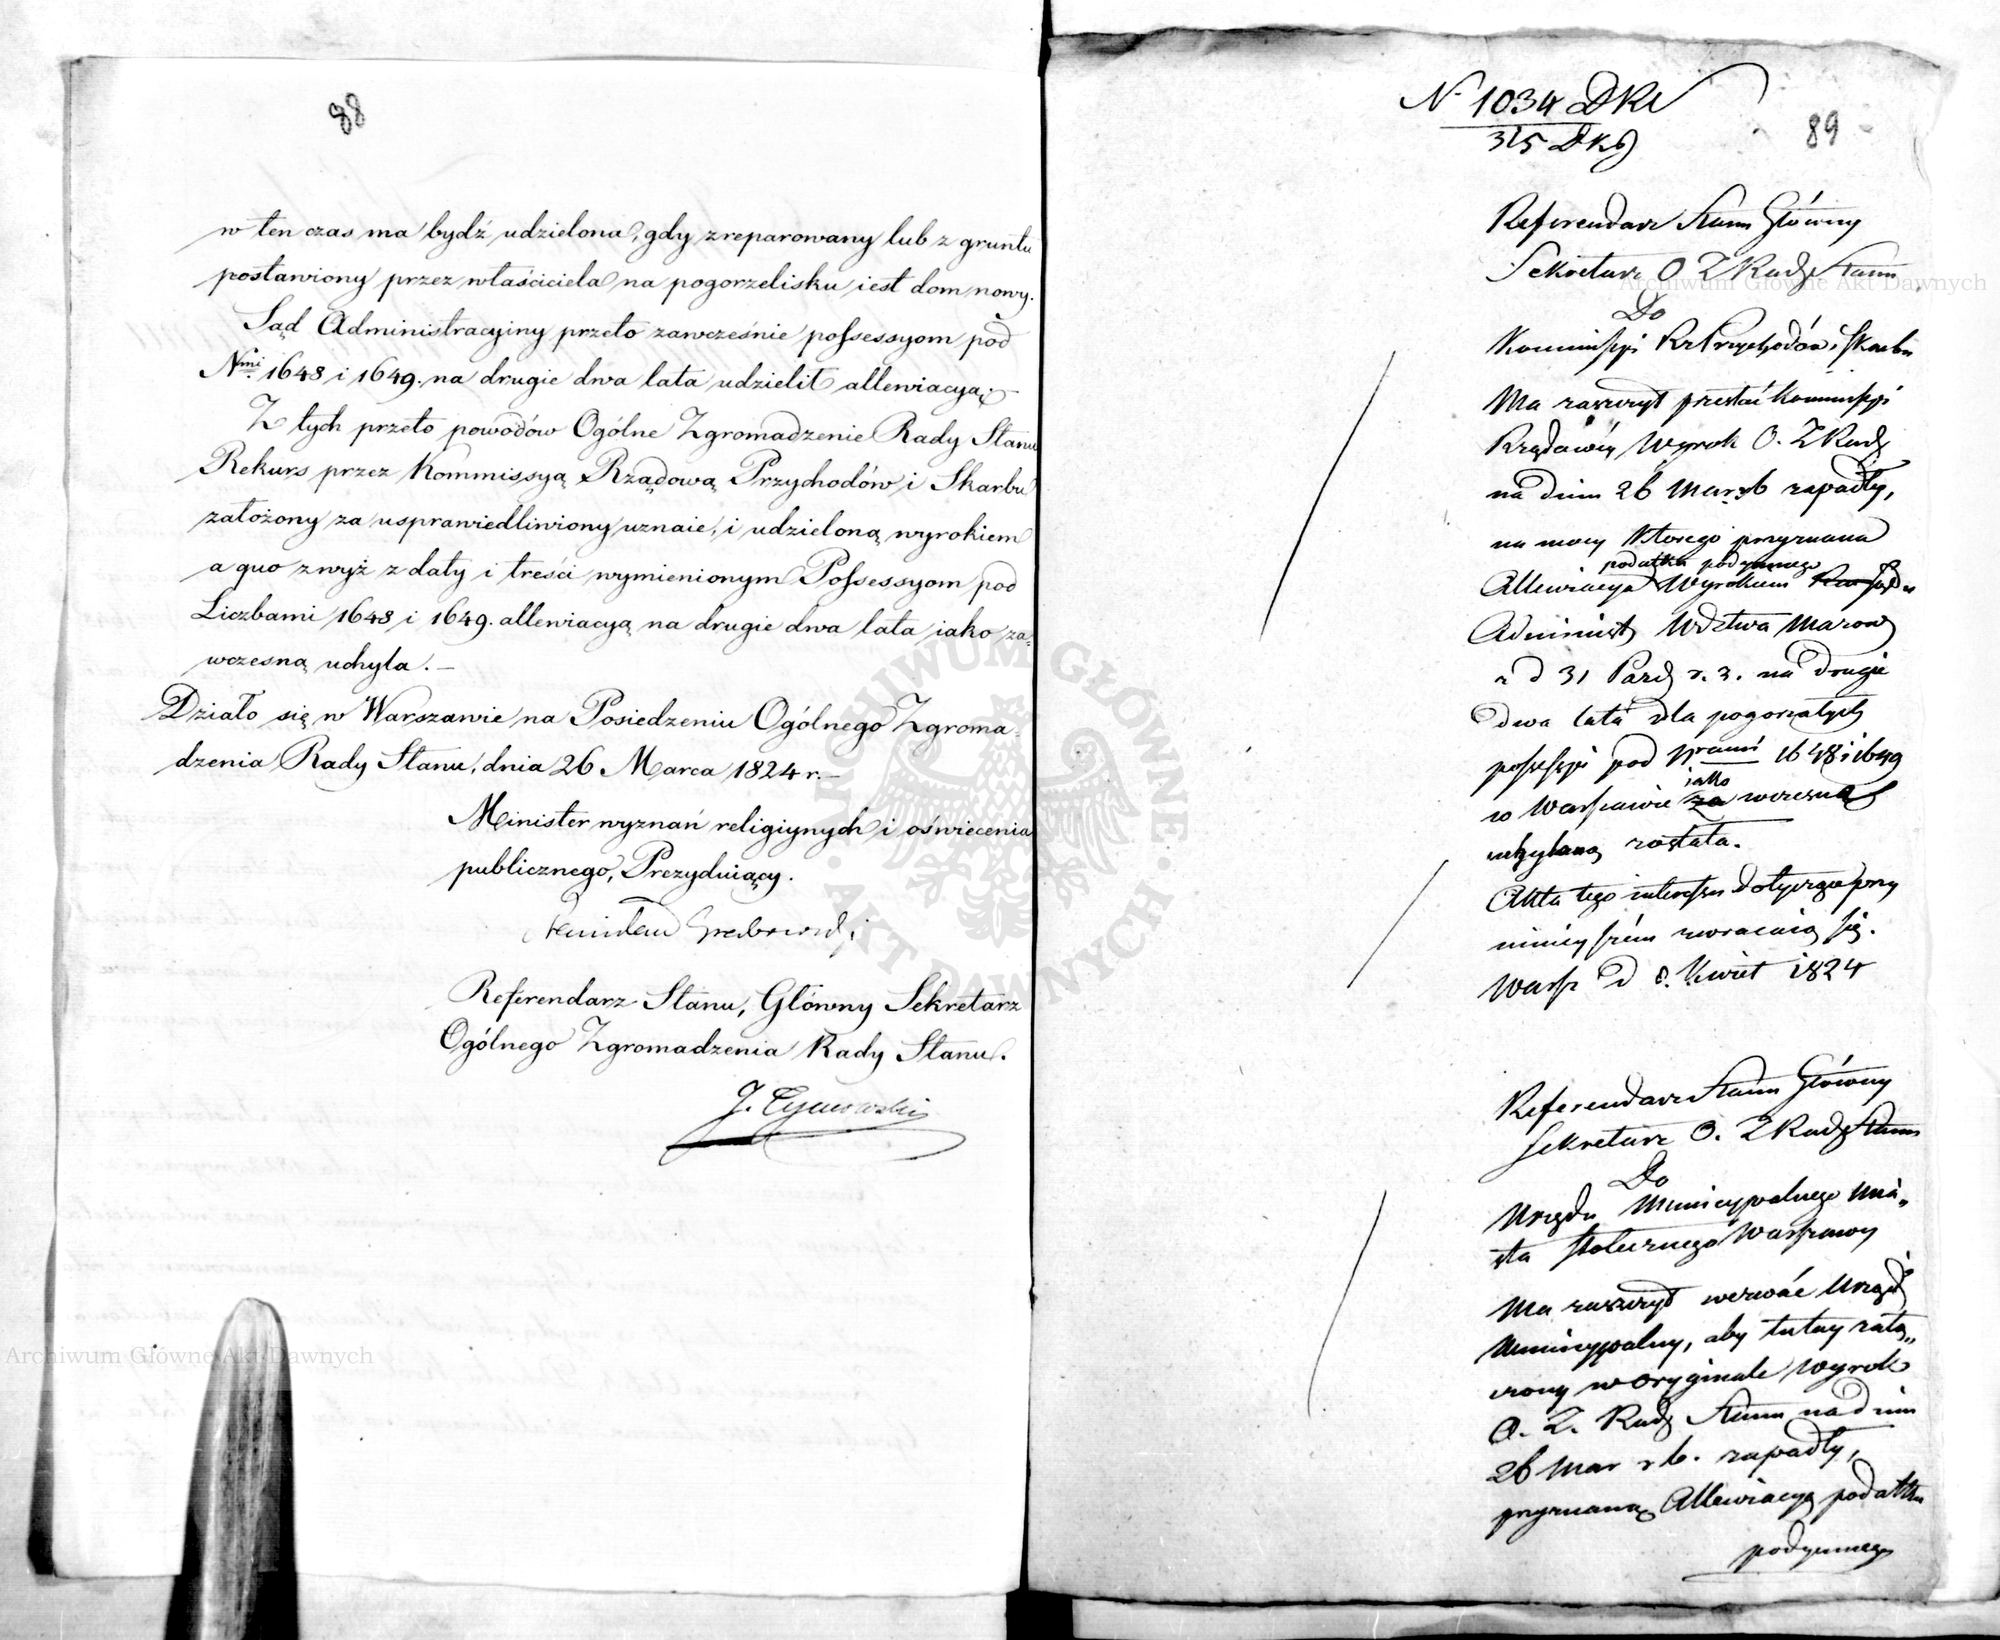 88
w ten czas ma bydź udzielona, gdy zreparowany lub z gruntu
postawiony przez właściciela na pogorzelisku iest dom nowy.
Sąd Administracyiny przeto zawcześnie possessyom pod
Nrmi 1648 i 1649. na drugie dwa lata udzielił allewiacyą.
Z tych przeto powodów Ogólne Zgromadzenie Rady Stanu
Rekurs przez Kommissyą Rządową Przychodów i Skarbu
założony za usprawiedliwiony uznaie, i udzieloną wyrokiem
a quo zwyż z daty i treści wymienionym Possessyom pod
Liczbami 1648 i 1649. allewiacyą na drugie dwa lata iako za=
wczesną uchyla.—
Działo się w Warszawie na Posiedzeniu Ogólnego Zgroma=
dzenia Rady Stanu, dnia 26. Marca 1824 r.—
Minister wyznań religiynych i oświecenia
publicznego, Prezyduiący.
Stanisław Grabowski
Referendarz Stanu, Główny Sekretarz
Ogólnego Zgromadzenia Rady Stanu.
J. Tymowski
N 1034 DKl
315 DKg
89
Referendarz Stanu Główny
Sekretarz O Z Rady Stanu
Do
Kommissyi Rz Przychodów i Skarbu
Ma zaszczyt przesłać Kommissyi
Rządowéy Wyrok O. Z Rady
na dniu 26 Mar. r b zapadły,
na mocy którego przyznana
podatku podymnego
Allewiacya Wyrokiem Sądu
Administ Wdztwa Mazow
z d 31 Paźd r. z. na drugie
dwa lata dla pogorzałych
possessyi pod Nrami 1648 i 1649
iako
w Warszawie za wczesna
uchyloną została.
Akta tego interessu dotyczące przy
ninieyszém zwracaią się.
Warsz d 8. Kwiet 1824
Referendarz Stanu Główny
Sekretarz O. Z Rady Stanu
Do
Urzędu Municypalnego mia„
sta stołecznego Warszawy
Ma zaszczyt wezwać Urząd
Municypalny, aby tutay załą„
czony w oryginale Wyrok
O. Z. Rady Stanu na dniu
26 Mar r b. zapadły,
przyznaną Allewiacyą podatku
podymnego
Archiwum Główne Akt Dawnych
Archiwum Główne Akt Dawnych
ARCHIWUM GŁÓWNE • AKT DAWNYCH •